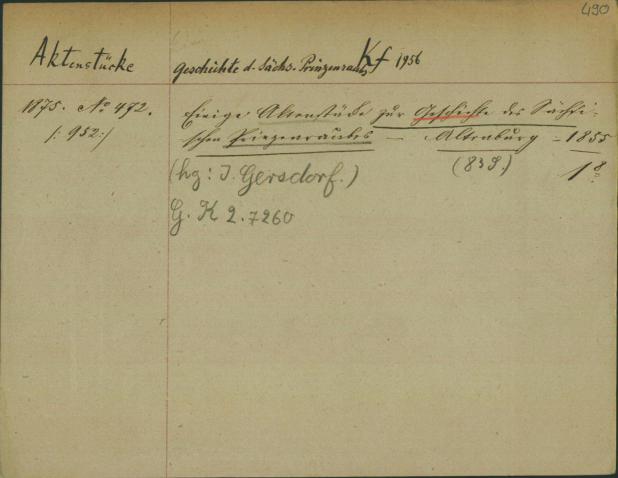 490
Aktenstücke Geschichte d. Sächs. Prinzenraub Kf 1956
1875. No 472. Einige Aktenstücke zur Geschichte des Sächsi-
/: 952 :/ schen Prinzenraubes — Altenburg - 1855
(hg: J. Gersdorf.) (83 S.) 1 8°
G. K 2.7260